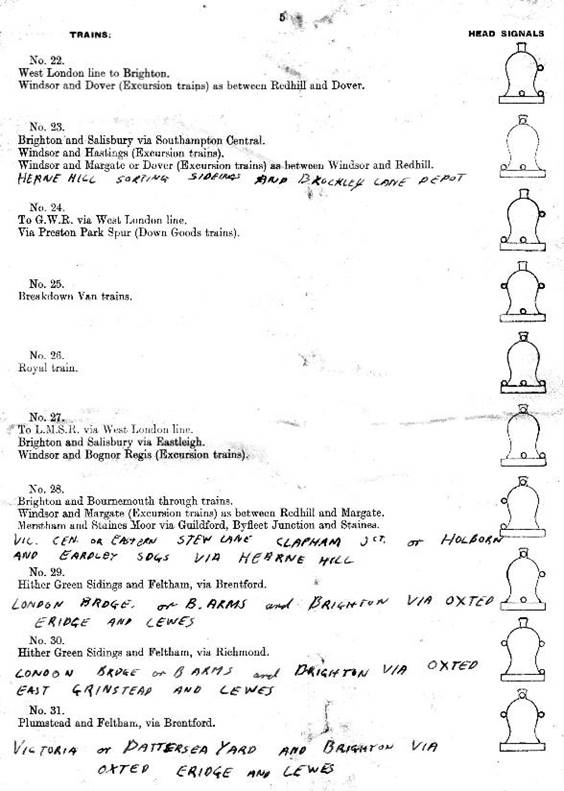 5
TRAINS: HEAD SIGNALS
No. 22.
West London line to Brighton.
Windsor and Dover (Excursion trains) as between Redhill and Dover.
No. 23.
Brighton and Salisbury via Southampton Central.
Windsor and Hastings (Excursion trains).
Windsor and Margate or Dover (Excursion trains) as between Windsor and Redhill.
HERNE HILL SORTING SIDEINGS AND BROCKLEY LANE DEPOT
No. 24.
To G.W.R. via West London line.
Via Preston Park Spur (Down Goods trains).
No. 25.
Breakdown Van trains.
No. 26.
Royal train.
No. 27.
To L.M.S.R. via West London line.
Brighton and Salisbury via Eastleigh.
Windsor and Bognor Regis (Excursion trains).
No. 28.
Brighton and Bournemouth through trains.
Windsor and Margate (Excursion trains) as between Redhill and Margate.
Merstham and Staines Moor via Guildford, Byfleet Junction and Staines.
VIC. CEN. OR EASTERN STEW LANE CLAPHAM JCT. or HOLBORN
AND EARDLEY SDGS VIA HEARNE HILL
No. 29.
Hither Green Sidings and Feltham, via Brentford.
LONDON BRDGE. or B. ARMS and BRIGHTON VIA OXTED
ERIDGE AND LEWES
No. 30.
Hither Green Sidings and Feltham, via Richmond.
LONDON BRDGE or B ARMS and BRIGHTON VIA OXTED
EAST GRINSTEAD AND LEWES
No. 31.
Plumstead and Feltham, via Brentford.
VICTORIA or BATTERSEA YARD AND BRIGHTON VIA
OXTED ERIDGE AND LEWES